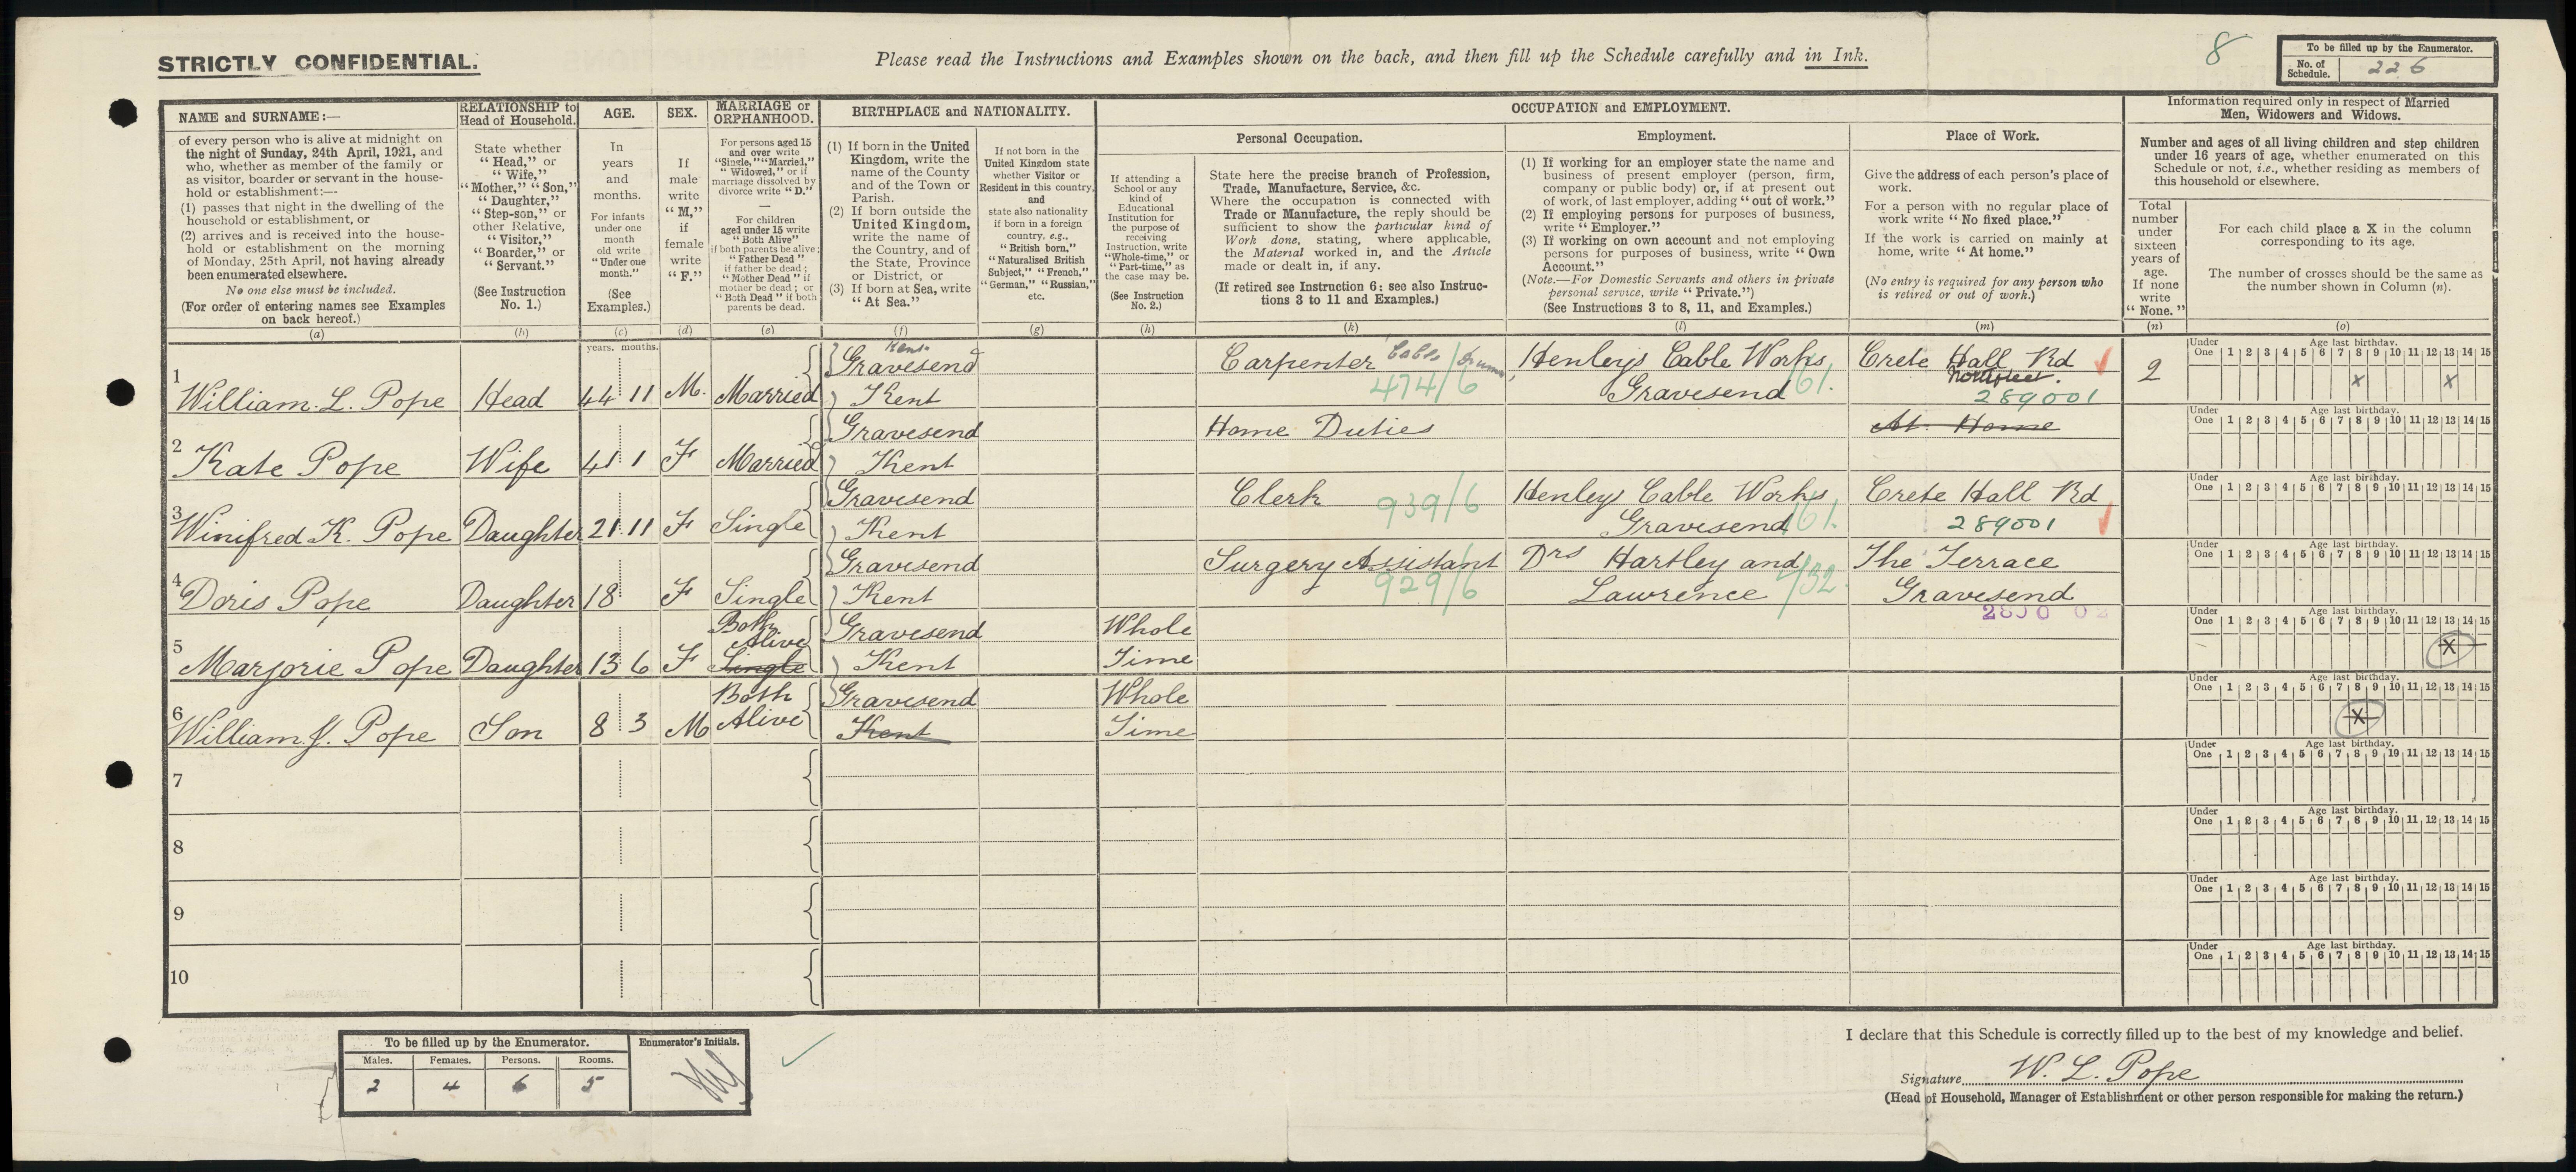 STRICTLY CONFIDENTIAL.
Please read the Instructions and Examples shown on the back, and then fill up the Schedule carefully and in Ink.
8
To be filled up by the Enumerator.
No. of Schedule. 226
NAME and SURNAME:—
of every person who is alive at midnight on
the night of Sunday, 24th April, 1921, and
who, whether as member of the family or
as visitor, boarder or servant in the house-
hold or establishment:—
(1) passes that night in the dwelling of the
household or establishment, or
(2) arrives and is received into the house-
hold or establishment on the morning
of Monday, 25th April, not having already
been enumerated elsewhere.
No one else must be included.
(For order of entering names see Examples
on back hereof.)
(a)
RELATIONSHIP to
Head of Household.
State whether
"Head," or
"Wife,"
"Mother," "Son,"
"Daughter,"
"Step-son," or
other Relative,
"Visitor,"
"Boarder," or
"Servant."
(See Instruction
No. 1.)
(b)
AGE.
In
years
and
months.
For infants
under one
month
old write
"Under one
month."
(See
Examples.)
(c)
SEX.
If
male
write
"M,"
if
female
write
"F."
(d)
MARRIAGE or
ORPHANHOOD.
For persons aged 15
and over write
"Single," "Married,"
"Widowed," or if
marriage dissolved by
divorce write "D."
—
For children
aged under 15 write
"Both Alive"
if both parents be alive;
"Father Dead"
if father be dead;
"Mother Dead" if
mother be dead; or
"Both Dead" if both
parents be dead.
(e)
BIRTHPLACE and NATIONALITY.
(1) If born in the United
Kingdom, write the
name of the County
and of the Town or
Parish.
(2) If born outside the
United Kingdom,
write the name of
the Country, and of
the State, Province
or District, or
(3) If born at Sea, write
"At Sea."
(f)
If not born in the
United Kingdom state
whether Visitor or
Resident in this country,
and
state also nationality
if born in a foreign
country, e.g.,
"British born,"
"Naturalised British
Subject," "French,"
"German," "Russian,"
etc.
(g)
OCCUPATION and EMPLOYMENT.
If attending a
School or any
kind of
Educational
Institution for
the purpose of
receiving
Instruction, write
"Whole-time," or
"Part-time," as
the case may be.
(See Instruction
No. 2.)
(h)
Personal Occupation.
State here the precise branch of Profession,
Trade, Manufacture, Service, &c.
Where the occupation is connected with
Trade or Manufacture, the reply should be
sufficient to show the particular kind of
Work done, stating, where applicable,
the Material worked in, and the Article
made or dealt in, if any.
(If retired see Instruction 6: see also Instruc-
tions 3 to 11 and Examples.)
(k)
Employment.
(1) If working for an employer state the name and
business of present employer (person, firm,
company or public body) or, if at present out
of work, of last employer, adding "out of work."
(2) If employing persons for purposes of business,
write "Employer."
(3) If working on own account and not employing
persons for purposes of business, write "Own
Account."
(Note.—For Domestic Servants and others in private
personal service, write "Private.")
(See Instructions 3 to 8, 11, and Examples.)
(l)
Place of Work.
Give the address of each person's place of
work.
For a person with no regular place of
work write "No fixed place."
If the work is carried on mainly at
home, write "At home."
(No entry is required for any person who
is retired or out of work.)
(m)
Information required only in respect of Married
Men, Widowers and Widows.
Number and ages of all living children and step children
under 16 years of age, whether enumerated on this
Schedule or not, i.e., whether residing as members of
this household or elsewhere.
Total
number
under
sixteen
years of
age.
If none
write
"None."
(n)
For each child place a X in the column
corresponding to its age.
The number of crosses should be the same as
the number shown in Column (n).
(o)
years. months.
1 William. L. Pope Head 44 11 M. Married Kent Gravesend Kent Carpenter Cable Drums 474/6 Henleys Cable Works Gravesend 61. Crete Hall Rd Northfleet. 289001 2
Under One 1 2 3 4 5 6 7 8 9 10 11 12 13 14 15 Age last birthday. x x
2 Kate Pope Wife 41 1 F Married Gravesend Kent Home Duties At Home
Under One 1 2 3 4 5 6 7 8 9 10 11 12 13 14 15 Age last birthday.
3 Winifred K. Pope Daughter 21 11 F Single Gravesend Kent Clerk 939/6 Henleys Cable Works Gravesend 61. Crete Hall Rd 289001
Under One 1 2 3 4 5 6 7 8 9 10 11 12 13 14 15 Age last birthday.
4 Doris Pope Daughter 18 F Single Gravesend Kent Surgery Assistant 929/6 Drs Hartley and Lawrence The Terrace Gravesend
Under One 1 2 3 4 5 6 7 8 9 10 11 12 13 14 15 Age last birthday.
5 Marjorie Pope Daughter 13 6 F Both Alive Single Gravesend Kent Whole Time
Under One 1 2 3 4 5 6 7 8 9 10 11 12 13 14 15 Age last birthday. X
6 William J. Pope Son 8 3 M Both Alive Gravesend Kent Whole Time
Under One 1 2 3 4 5 6 7 8 9 10 11 12 13 14 15 Age last birthday. X
7
Under One 1 2 3 4 5 6 7 8 9 10 11 12 13 14 15 Age last birthday.
8
Under One 1 2 3 4 5 6 7 8 9 10 11 12 13 14 15 Age last birthday.
9
Under One 1 2 3 4 5 6 7 8 9 10 11 12 13 14 15 Age last birthday.
10
Under One 1 2 3 4 5 6 7 8 9 10 11 12 13 14 15 Age last birthday.
To be filled up by the Enumerator.
Males. Females. Persons. Rooms.
2 4 6 5
Enumerator's Initials.
I declare that this Schedule is correctly filled up to the best of my knowledge and belief.
Signature W. L. Pope
(Head of Household, Manager of Establishment or other person responsible for making the return.)